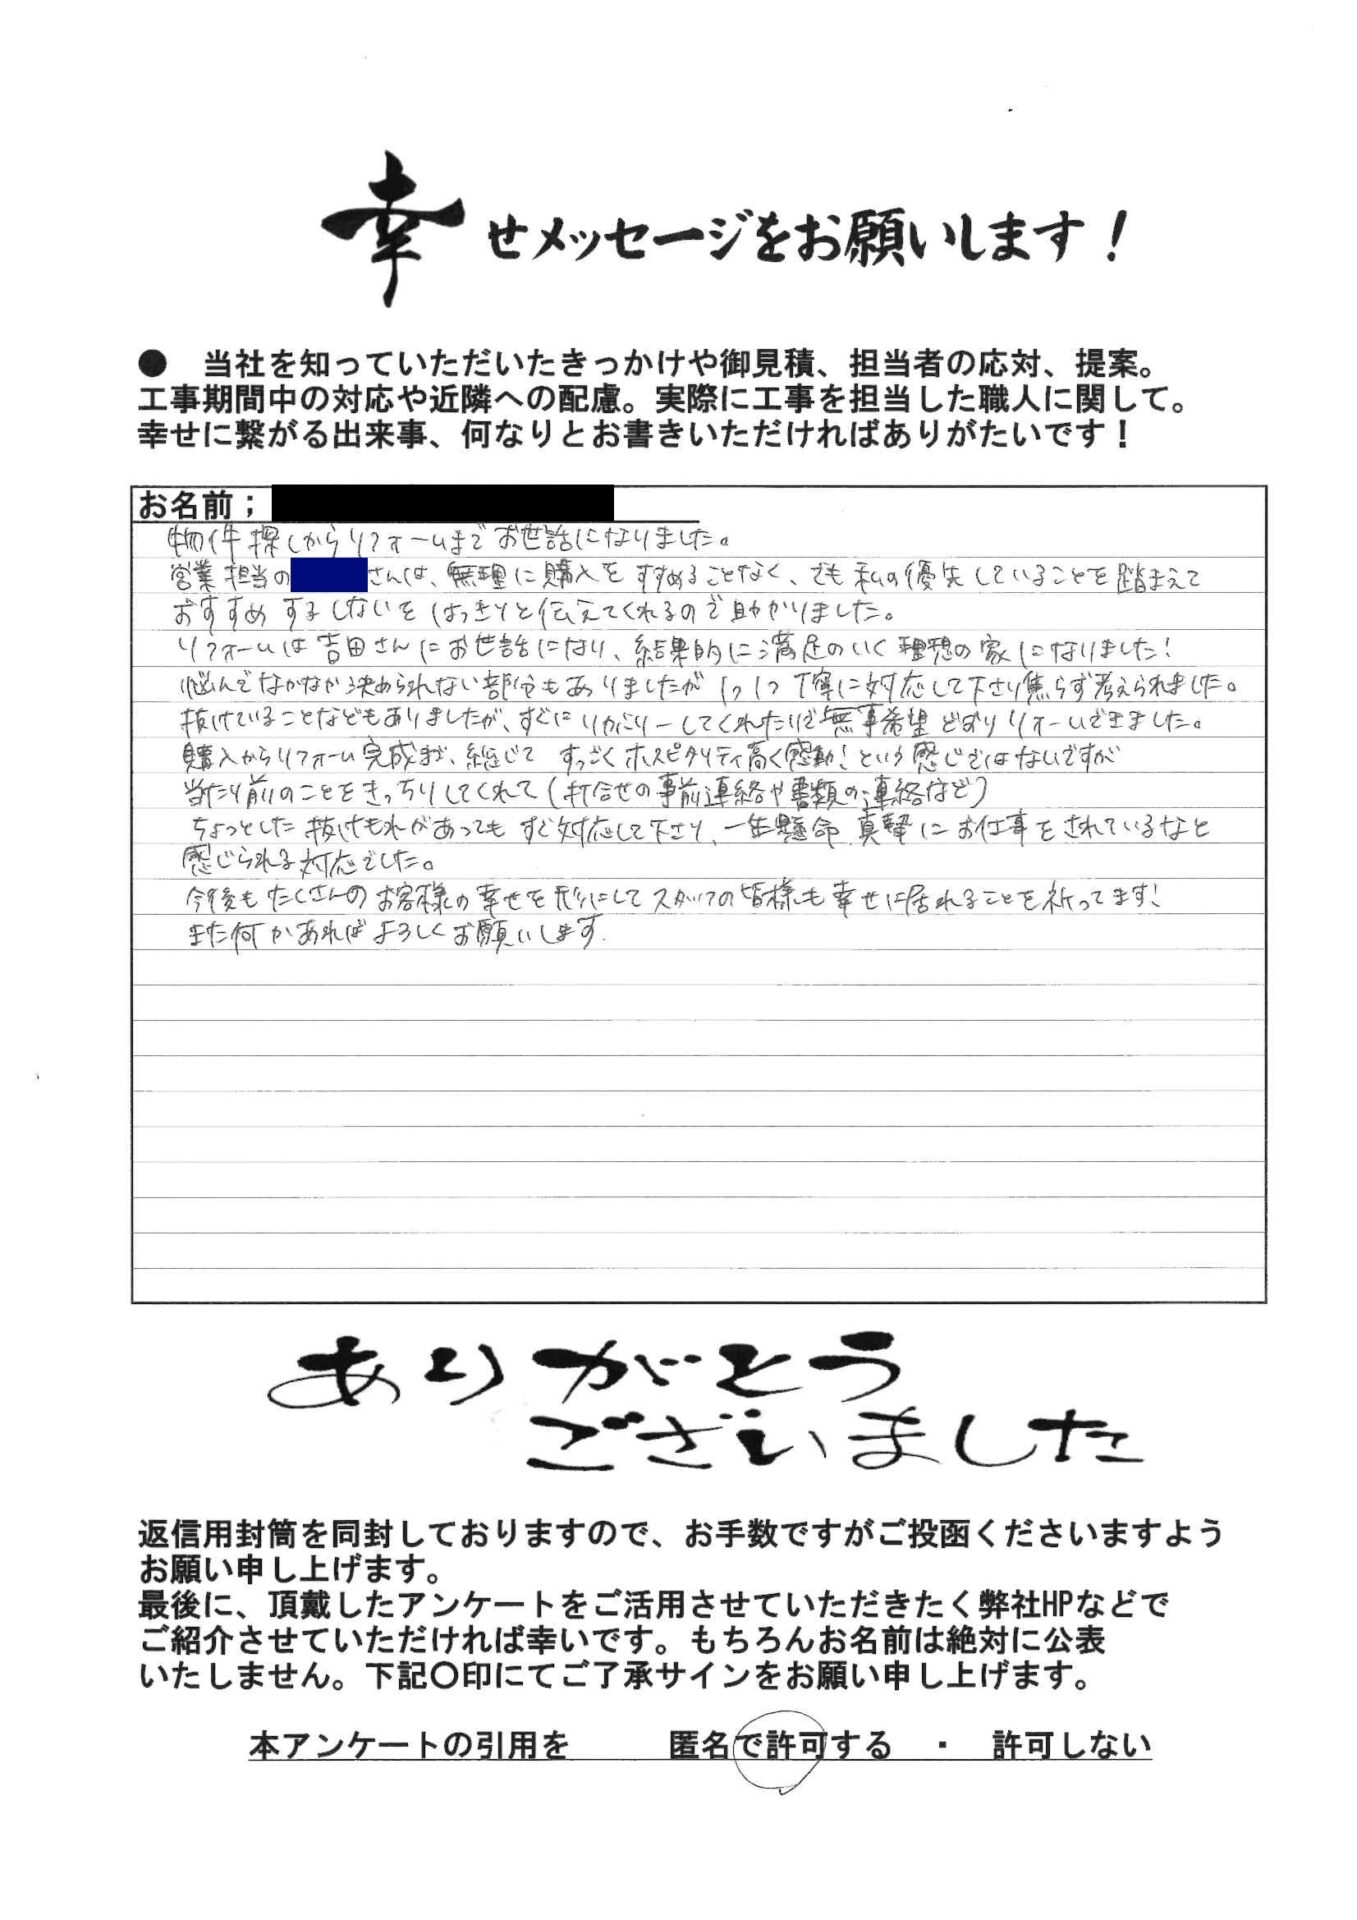 幸せメッセージをお願いします！
● 当社を知っていただいたきっかけや御見積、担当者の応対、提案。
工事期間中の対応や近隣への配慮。実際に工事を担当した職人に関して。
幸せに繋がる出来事、何なりとお書きいただければありがたいです！
お名前；
物件探しからリフォームまでお世話になりました。
営業担当の さんは、無理に購入をすすめることなく、でも私の優先していることを踏まえて
おすすめするしないをはっきりと伝えてくれるので助かりました。
リフォームは吉田さんにお世話になり、結果的に満足のいく理想の家になりました！
悩んでなかなか決められない部分もありましたが1つ1つ丁寧に対応して下さり焦らず考えられました。
抜けていることなどもありましたが、すぐにリカバリーしてくれたので無事希望どおりリフォームできました。
購入からリフォーム完成まで、総じてすっごくホスピタリティ高く感動！という感じではないですが
当たり前のことをきっちりしてくれて(打合せの事前連絡や書類の連絡など)
ちょっとした抜けもれがあってもすぐ対応して下さり、一生懸命真摯にお仕事をされているなと
感じられる対応でした。
今後もたくさんのお客様の幸せを形にしてスタッフの皆様も幸せに居れることを祈ってます！
また何かあればよろしくお願いします
ありがとう
ございました
返信用封筒を同封しておりますので、お手数ですがご投函くださいますよう
お願い申し上げます。
最後に、頂戴したアンケートをご活用させていただきたく弊社HPなどで
ご紹介させていただければ幸いです。もちろんお名前は絶対に公表
いたしません。下記〇印にてご了承サインをお願い申し上げます。
本アンケートの引用を 匿名で許可する ・ 許可しない